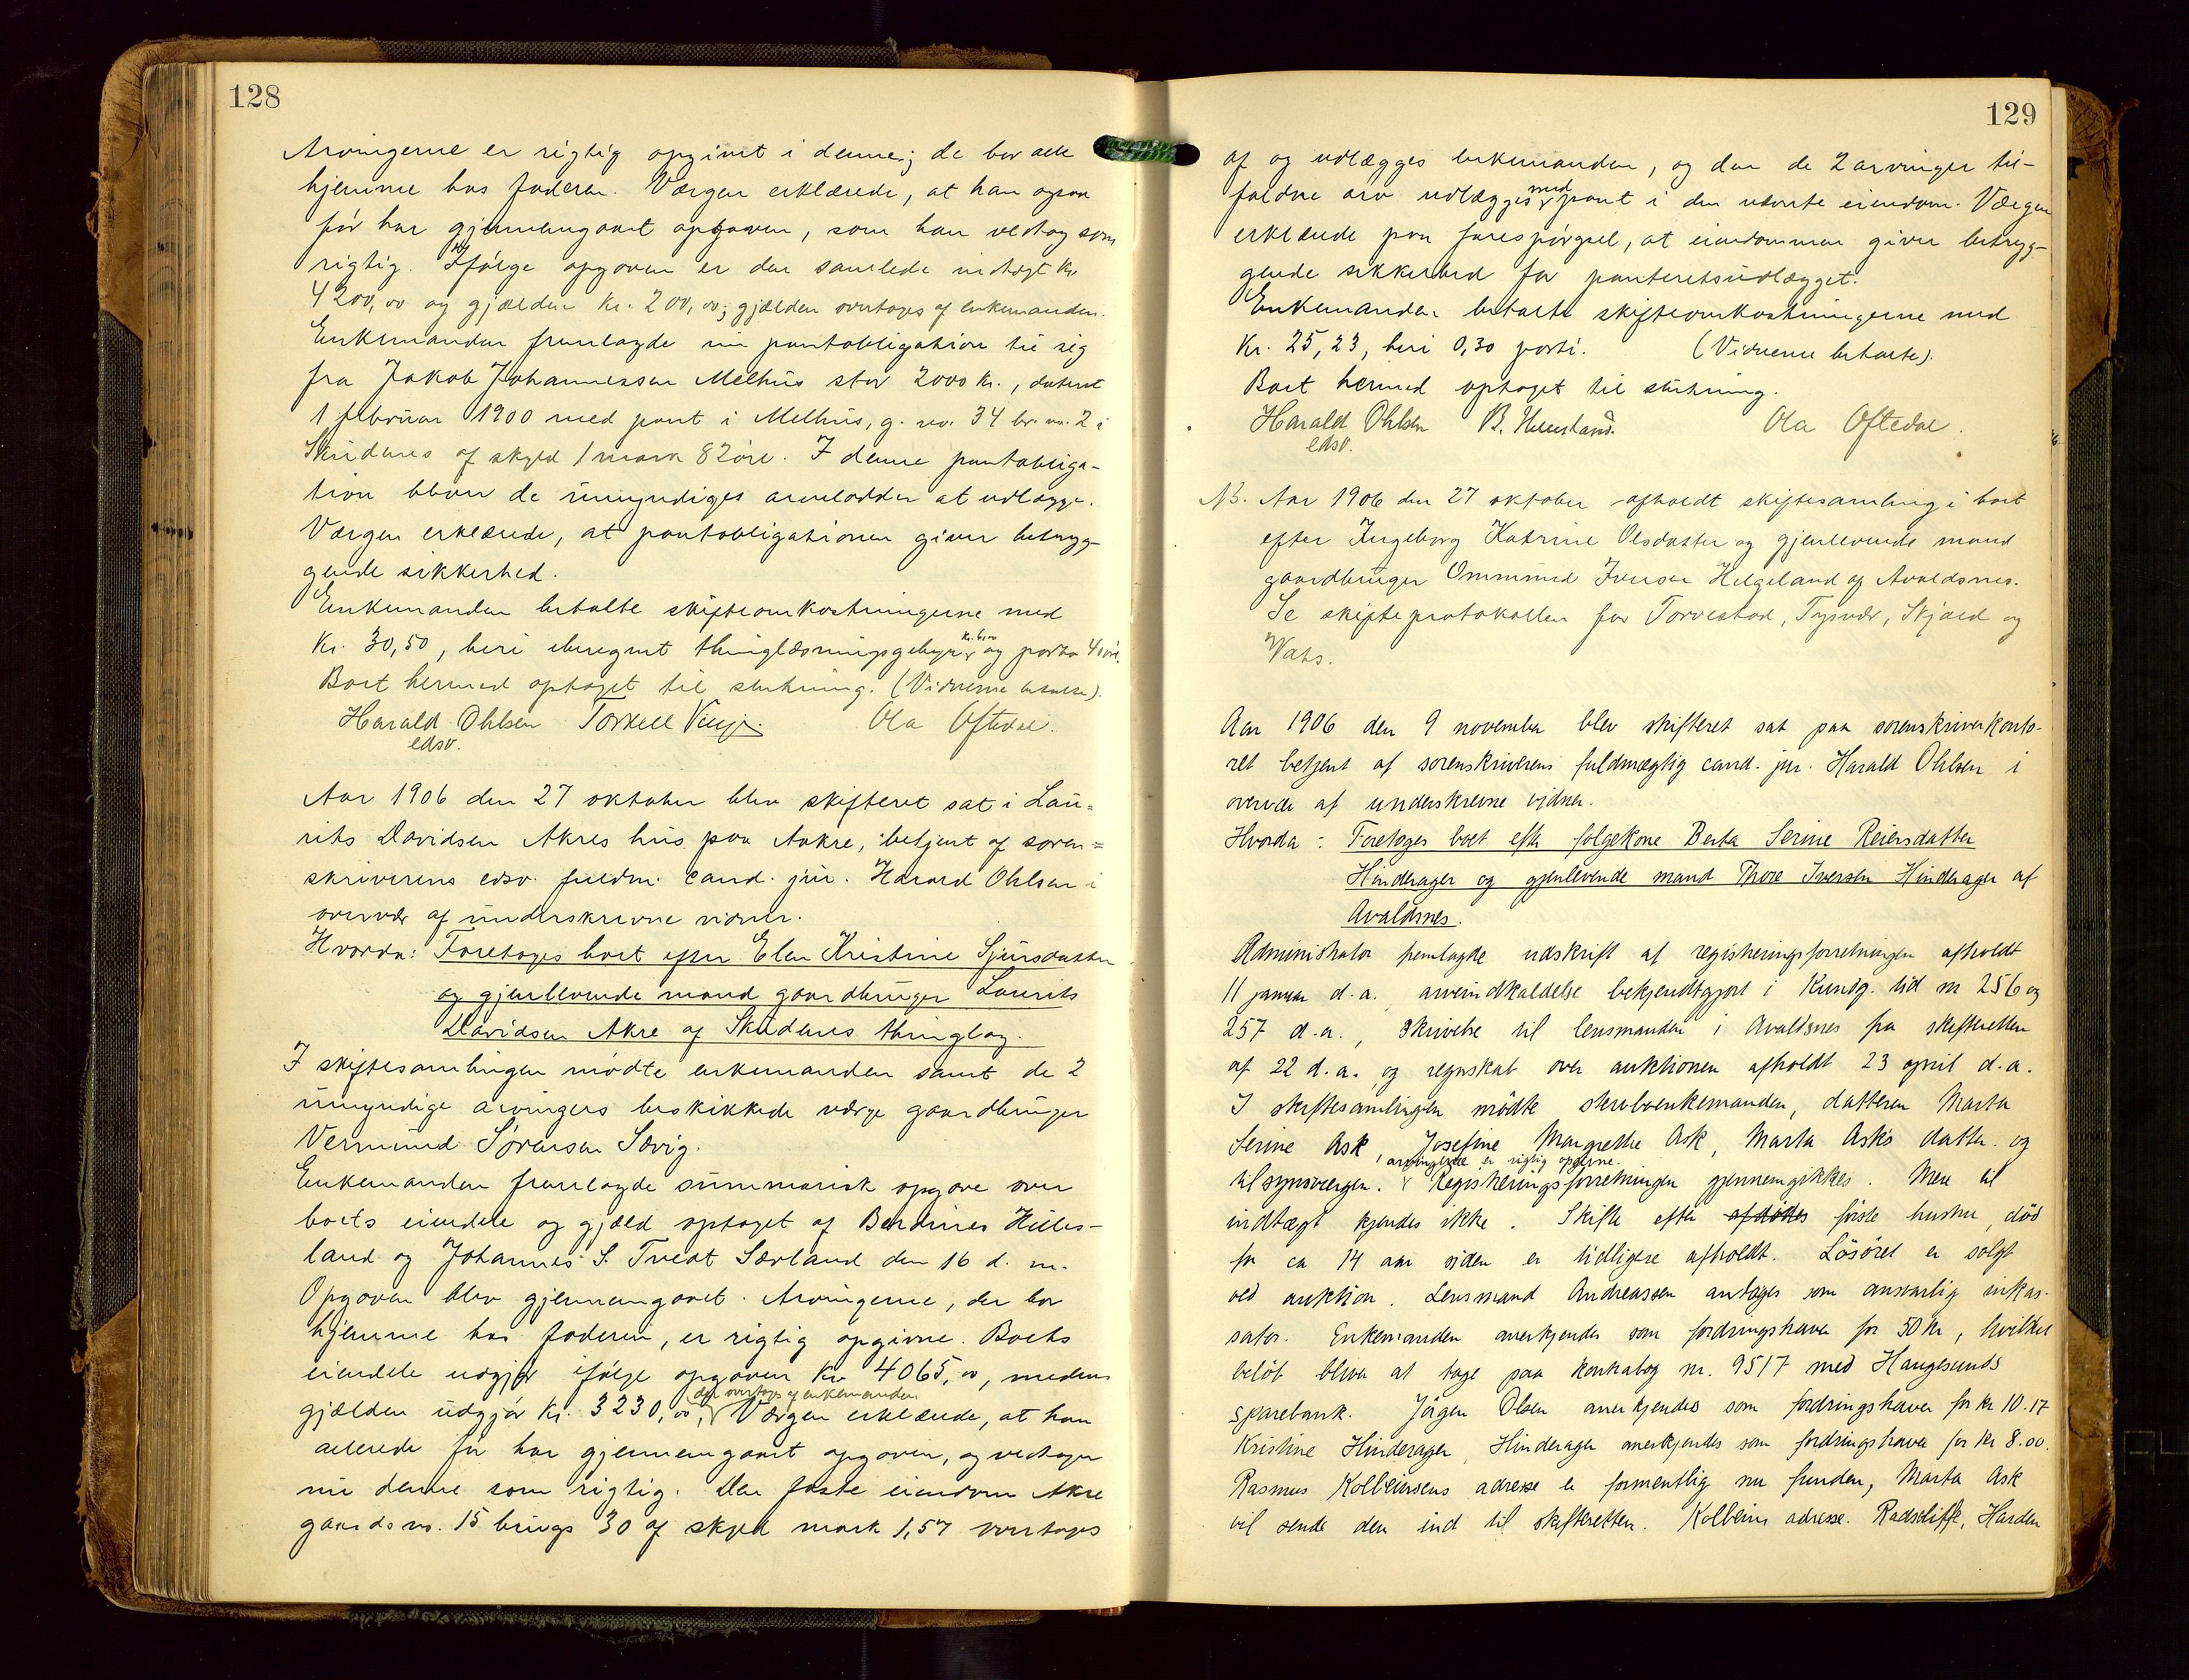 128
Arvingerne er rigtig opgivet i denne; de bor alle
hjemme hos faderen. Værgen erklærede, at han ogsaa
før har gjennemgaaet opgaven, som han vedtog som
rigtig. Ifølge opgaven er den samlede indtægt kr.
4200,00 og gjælden kr. 200,00; gjælden overtages af enkemanden.
Enkemanden fremlagde en pantobligation til sig
fra Jakob Johannessen Melhus stor 2000 kr., dateret
1 februar 1900 med pant i Melhus, g. no. 34 br. no. 2 i
Skudenes af skyld 1 mark 82 øre. I denne pantobliga-
tion bliver de umyndiges arvelodder at udlægge.
Værgen erklærede, at pantobligationen giver betryg-
gende sikkerhed.
Enkemanden betalte skifteomkostningerne med
Kr. 30,50, heri iberegnet thinglæsningsgebyr kr. 6,00 og porto 40 øre.
Boet hermed optaget til slutning. (Vidnerne betalte).
Harald Ohlsen Torkell Vinje Ola Oftedal.
edsv.
Aar 1906 den 27 oktober blev skifteret sat i Lau=
rits Davidsen Akres hus paa Aakre, betjent af soren=
skriverens edsv. fuldm. cand. jur. Harald Ohlsen i
overvær af underskrevne vidner.
Hvorda: Foretages boet efter Elen Kristine Sjursdatter
og gjenlevende mand gaardbruger Laurits
Davidsen Akre af Skudenes thinglag.
I skiftesamlingen mødte enkemanden samt de 2
umyndige arvingers beskikkede værge gaardbruger
Vermund Sørensen Sævig.
Enkemanden fremlagde summarisk opgave over
boets eiendele og gjæld optaget af Berdines Hilles-
land og Johannes S. Tvedt Særland den 16 d. m.
Opgaven blev gjennemgaaet. Arvingerne, der bor
hjemme hos faderen, er rigtig opgivne. Boets
eiendele udgjør ifølge opgaven Kr. 4065,00, medens
gjælden udgjør Kr. 3230,00, der overtages af enkemanden. Værgen erklærede, at han
allerede før har gjennemgaaet opgaven, og vedtager
nu denne som rigtig. Den faste eiendom Akre
gaards no. 15 brugs 30 af skyld mark 1,57 overtages
129
af og udlægges enkemanden, og den de 2 arvinger til-
faldne arv udlægges med pant i den nævnte eiendom. Værgen
erklærede paa forespørgsel, at eiendommen giver betryg-
gende sikkerhed for panteretsudlægget.
Enkemanden betalte skifteomkostningerne med
Kr. 25,23, heri 0,30 porto. (Vidnerne betalte).
Boet hermed optaget til slutning.
Harald Ohlsen Ola Oftedal.
edsv.
NB. Aar 1906 den 27 oktober afholdt skiftesamling i boet
efter Ingeborg Katrine Olsdatter og gjenlevende mand
gaardbruger Ommund Iversen Helgeland af Avaldsnes.
Se skifteprotokollen for Torvestad, Tysvær, Skjold og
Vats.
Aar 1906 den 9 november blev skifteret sat paa sorenskriverkonto-
ret betjent af sorenskriverens fuldmægtig cand. jur. Harald Ohlsen i
overvær af underskrevne vidner.
Hvorda: Foretages boet efter følgekone Berta Serine Reiersdatter
Hinderager og gjenlevende mand Thore Iversen Hinderager af
Avaldsnes.
Administrator fremlagde udskrift af registreringsforretningen afholdt
11 januar d.a. arveindkaldelse bekjendtgjort i Kundg. tid nr 256 og
257 d.a., skrivelse til lensmanden i Avaldsnes fra skifteretten
af 22 d.a. og regnskab over auktionen afholdt 23 april d.a.
I skiftesamlingen mødte stervboenkemanden, datteren Marta
Serine Ask, Josefine Margrethe Ask, Marta Asks datter og
tilsynsværgen. arvingerne er rigtig opgivne. Registreringsforretningen gjennemgikkes. Mere til
indtægt kjendes ikke. Skifte efter afdødes første hustru, død
for ca 14 aar siden er tidligere afholdt. Løsøret er solgt
ved auktion. Lensmand Andreassen antages som ansvarlig inkas-
sator. Enkemanden anerkjendes som fordringshaver for 50 kr, hvilket
beløb bliver at tage paa kontrabog nr. 9517 med Haugesunds
sparebank. Jørgen Olsen anerkjendes som fordringshaver for kr 10.17
Kristine Hinderager, Hinderager anerkjendes som fordringshaver for kr 8.00.
Rasmus Kolbeinsens adresse er formentlig nu funden, Marta Ask
vil sende den ind til skifteretten. Kolbeins adresse. Radscliffe, Harden